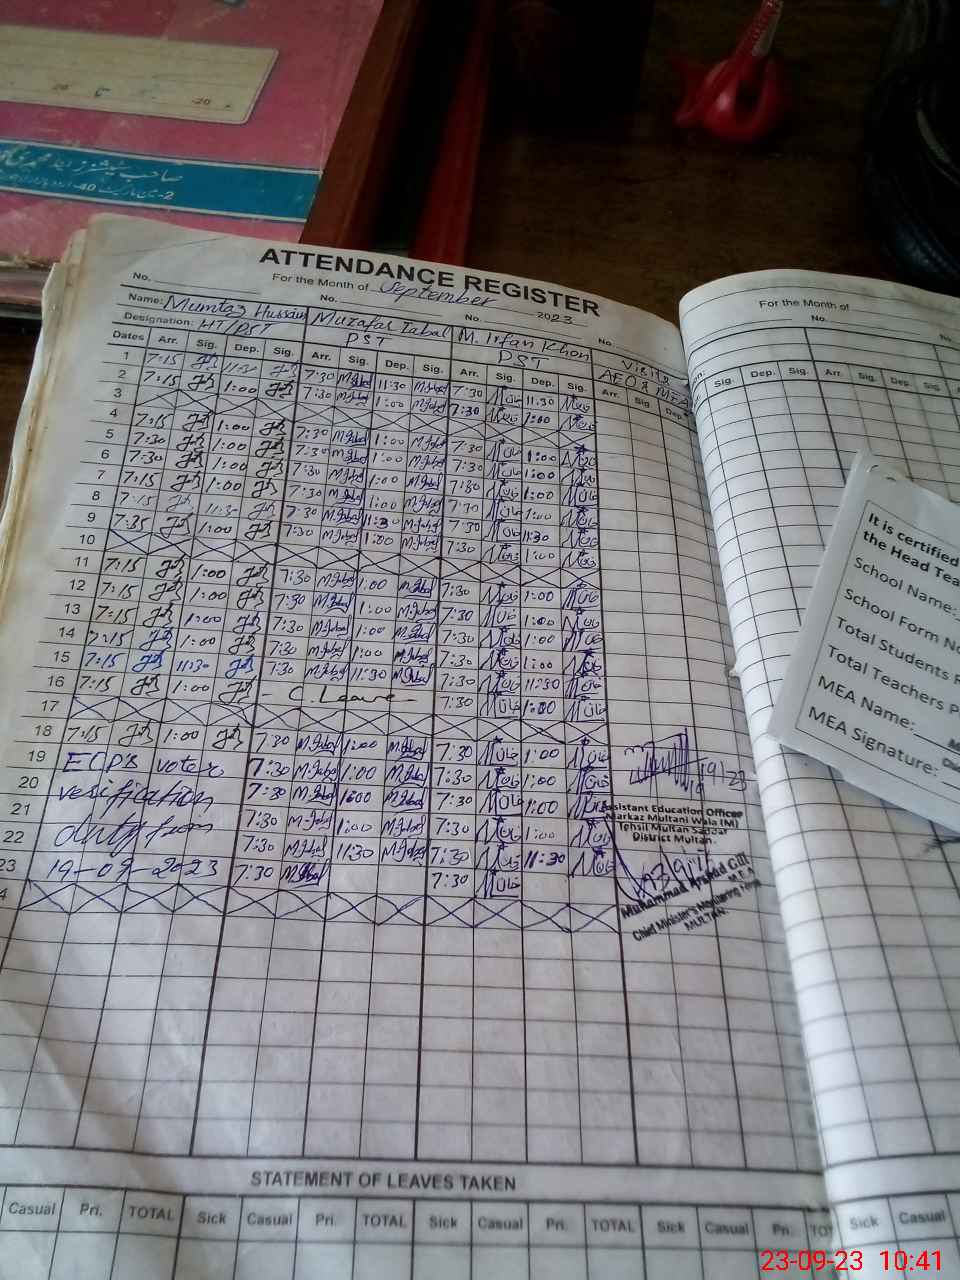 صاحب پبلیشرز اینڈ
2-مین مارکیٹ 40-اردو بازار
20 -20
ATTENDANCE REGISTER
No. For the Month of September
No. No. 2023 No.
Name: Mumtaz Hussain Muzafar Iqbal M. Irfan Khan Visits
Designation: HT/PST PST PST AEO & MEA
Dates Arr. Sig. Dep. Sig. Arr. Sig. Dep. Sig. Arr. Sig. Dep. Sig. Arr. Sig Dep.
1 7:15 11:30 7:30 M.Iqbal 11:30 M.Iqbal 7:30 11:30
2 7:15 1:00 7:30 M.Iqbal 1:00 M.Iqbal 7:30 1:00
3
4 7:15 1:00 7:30 M.Iqbal 1:00 M.Iqbal 7:30 1:00
5 7:30 1:00 7:30 M.Iqbal 1:00 M.Iqbal 7:30 1:00
6 7:30 1:00 7:30 M.Iqbal 1:00 M.Iqbal 7:30 1:00
7 7:15 1:00 7:30 M.Iqbal 1:00 M.Iqbal 7:30 1:00
8 7:15 11:30 7:30 M.Iqbal 11:30 M.Iqbal 7:30 11:30
9 7:35 1:00 7:30 M.Iqbal 1:00 M.Iqbal 7:30 1:00
10
11 7:15 1:00 7:30 M.Iqbal 1:00 M.Iqbal 7:30 1:00
12 7:15 1:00 7:30 M.Iqbal 1:00 M.Iqbal 7:30 1:00
13 7:15 1:00 7:30 M.Iqbal 1:00 M.Iqbal 7:30 1:00
14 7:15 1:00 7:30 M.Iqbal 1:00 M.Iqbal 7:30 1:00
15 7:15 11:30 7:30 M.Iqbal 11:30 M.Iqbal 7:30 11:30
16 7:15 1:00 - C. Leave - 7:30 1:00
17
18 7:15 1:00 7:30 M.Iqbal 1:00 M.Iqbal 7:30 1:00
19 ECP's voter 7:30 M.Iqbal 1:00 M.Iqbal 7:30 1:00
20 verification 7:30 M.Iqbal 1:00 M.Iqbal 7:30 1:00
21 duty from 7:30 M.Iqbal 1:00 M.Iqbal 7:30 1:00
22 7:30 M.Iqbal 11:30 M.Iqbal 7:30 11:30
23 19-09-2023 7:30 M.Iqbal 7:30
Assistant Education Officer
Markaz Multani Wala (M)
Tehsil Multan Saddar
District Multan.
Muhammad Arshad Gill
M.E.A
Chief Minister's Monitoring Force
MULTAN.
STATEMENT OF LEAVES TAKEN
Casual Pri. TOTAL Sick Casual Pri. TOTAL Sick Casual Pri. TOTAL Sick Casual Pri. TOT
For the Month of
No. No.
Sig. Dep. Sig. Arr. Sig. Dep. Sig. Arr.
Sick Casual
It is certified
the Head Tea
School Name:
School Form No
Total Students P
Total Teachers P
MEA Name:
MEA Signature:
23-09-23 10:41